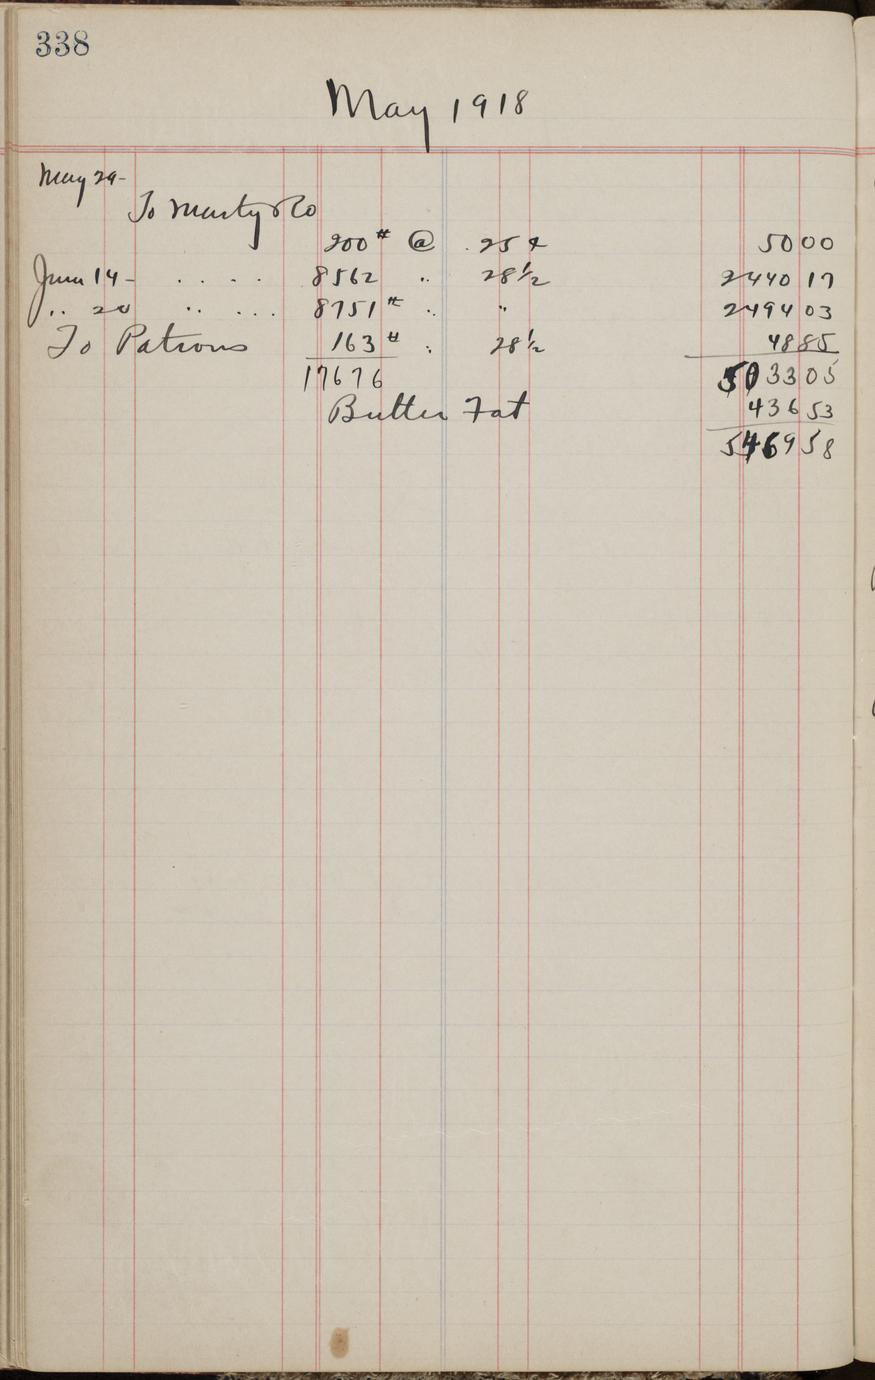 338
May 1918
May 29-
To Marty & Co
200# @ .25 ¢ 5000
June 14- . . . . 8562 .. 28 1/2 2440 17
.. 20 .. ... 8751# .. " 2494 03
To Patrons 163# .. 28 1/2 4885
17676 503305
Butter Fat 43653
546958